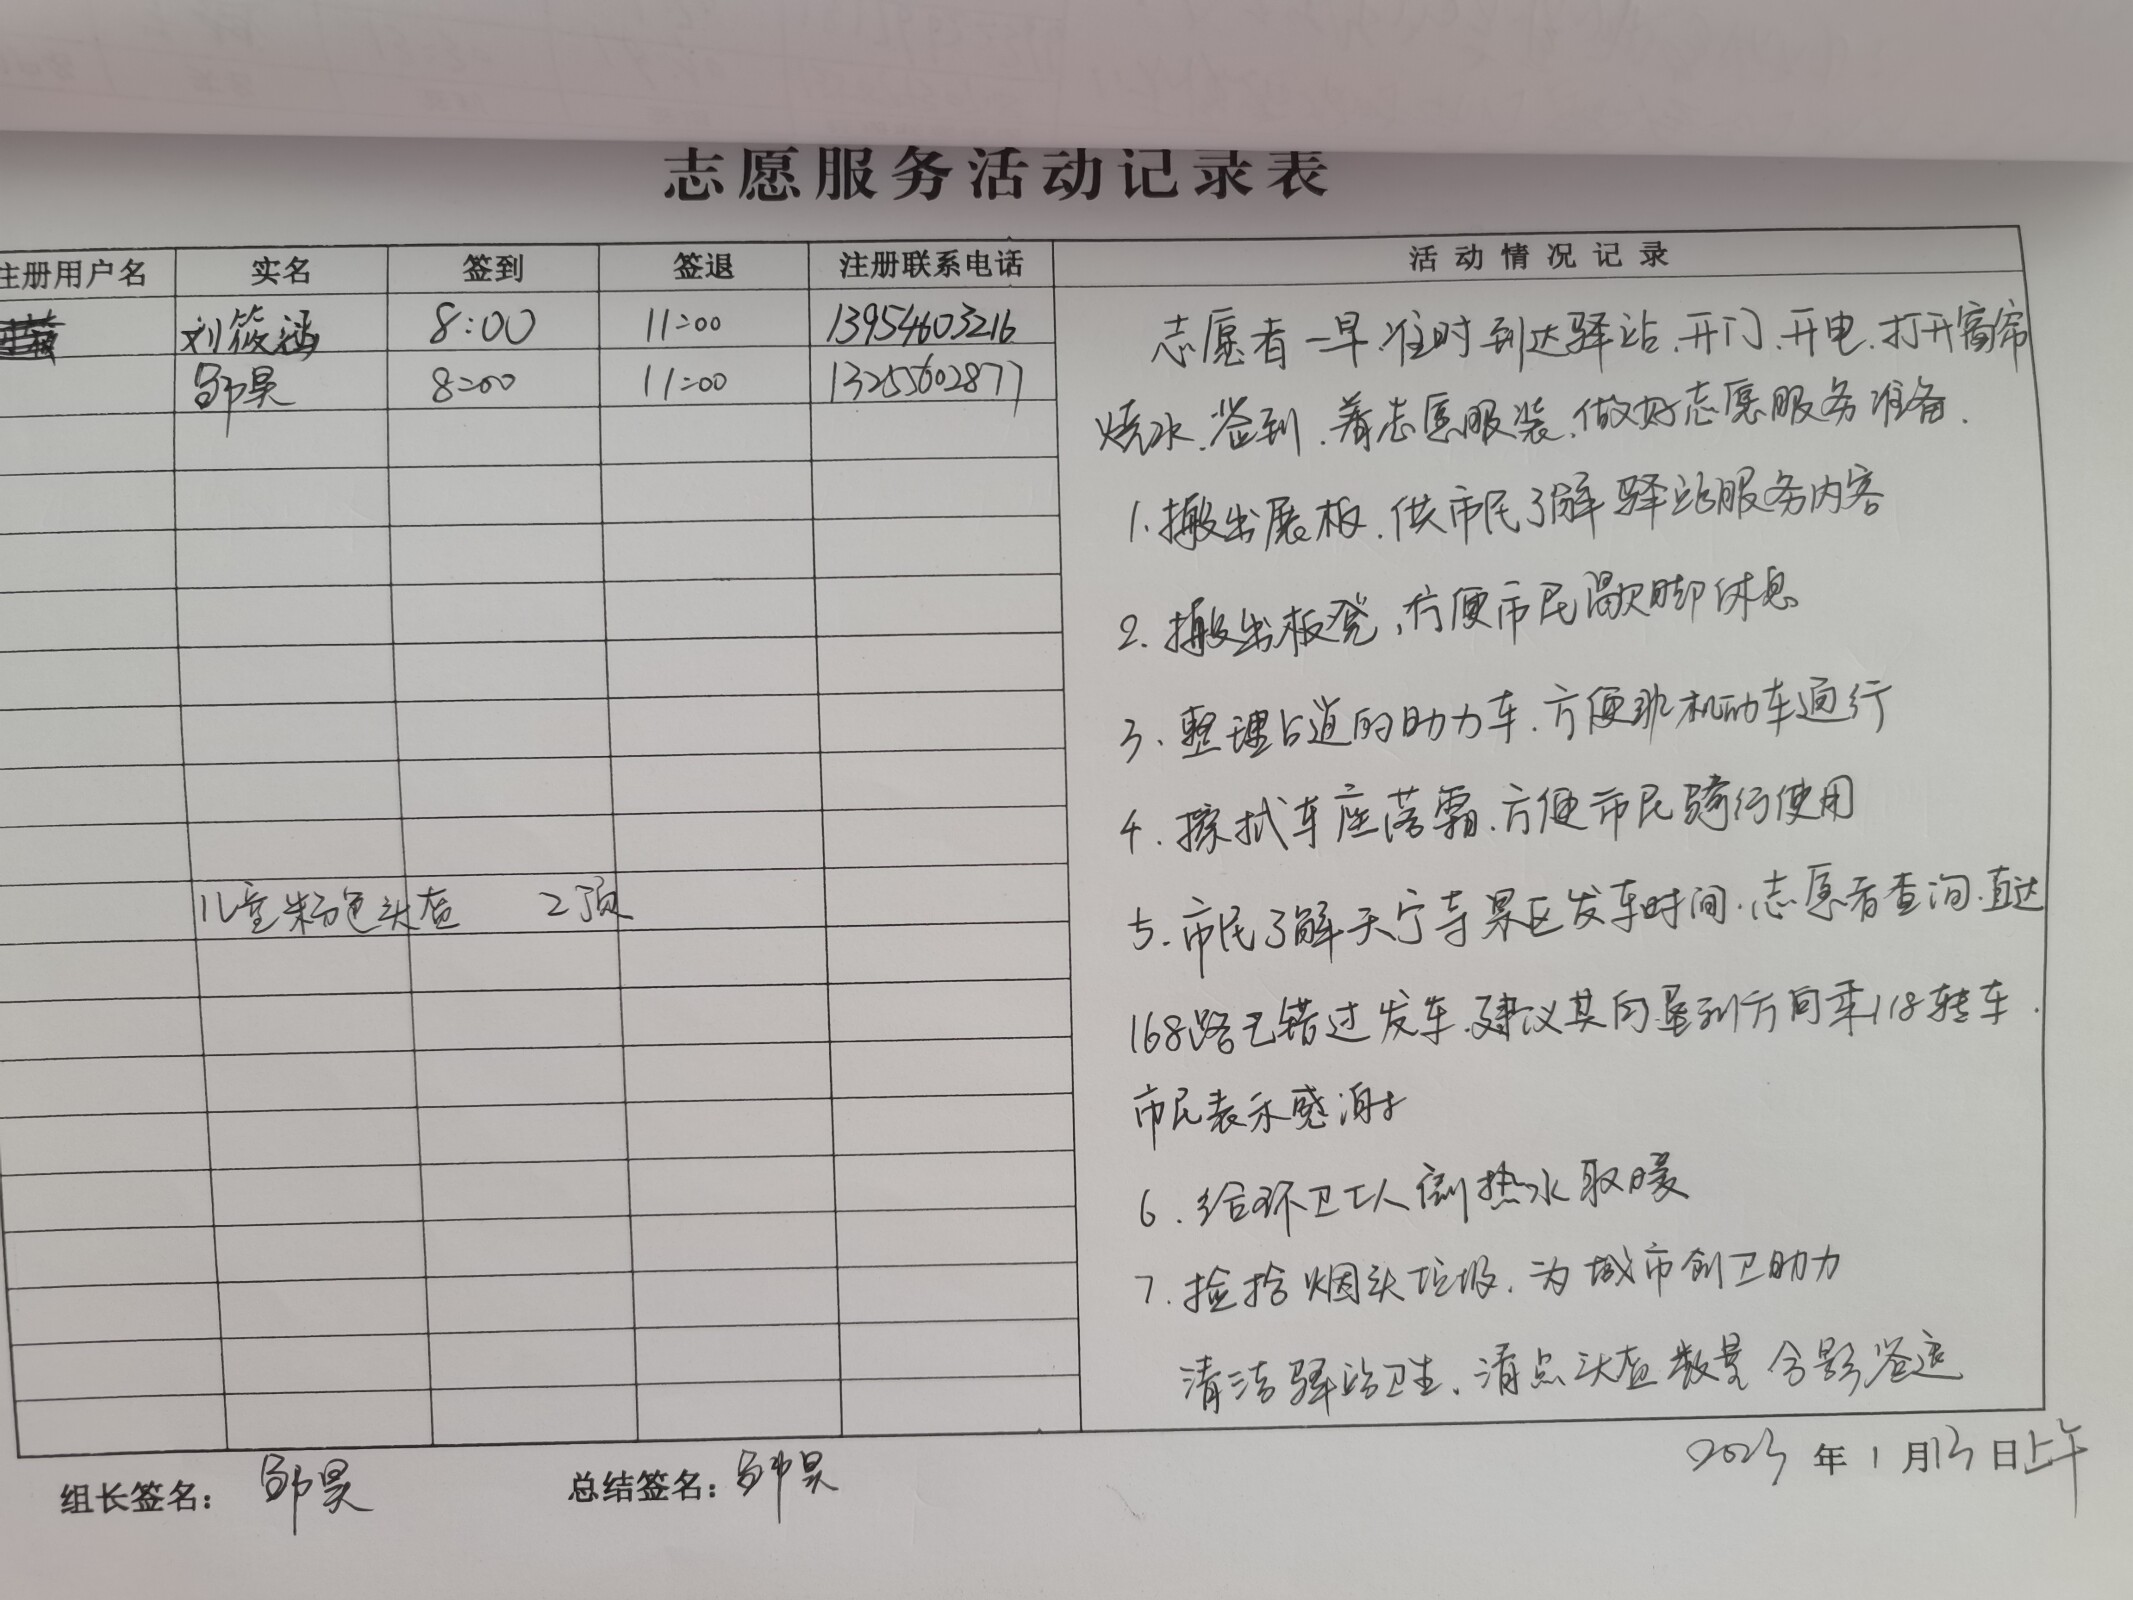 志愿服务活动记录表
注册用户名 实名 签到 签退 注册联系电话 活动情况记录
刘筱涵 8:00 11:00 13954603216
邹昊 8:00 11:00 13255602877
儿童粉色头盔 2顶
志愿者一早准时到达驿站、开门、开电、打开窗帘
烧水、签到、着志愿服装、做好志愿服务准备.
1.搬出展板、供市民了解驿站服务内容
2.搬出板凳,方便市民歇脚休息
3、整理占道的助力车、方便非机动车通行
4.擦拭车座落霜、方便市民骑行使用
5.市民了解天宁寺景区发车时间.志愿者查询.直达
168路已错过发车.建议其向 方向乘118转车.
市民表示感谢
6.给环卫工人 热水取暖
7.捡拾烟头垃圾、为城市创卫助力
清洁驿站卫生、清点头盔数量 合影签退
组长签名: 邹昊 总结签名: 邹昊 2023年1月13日上午